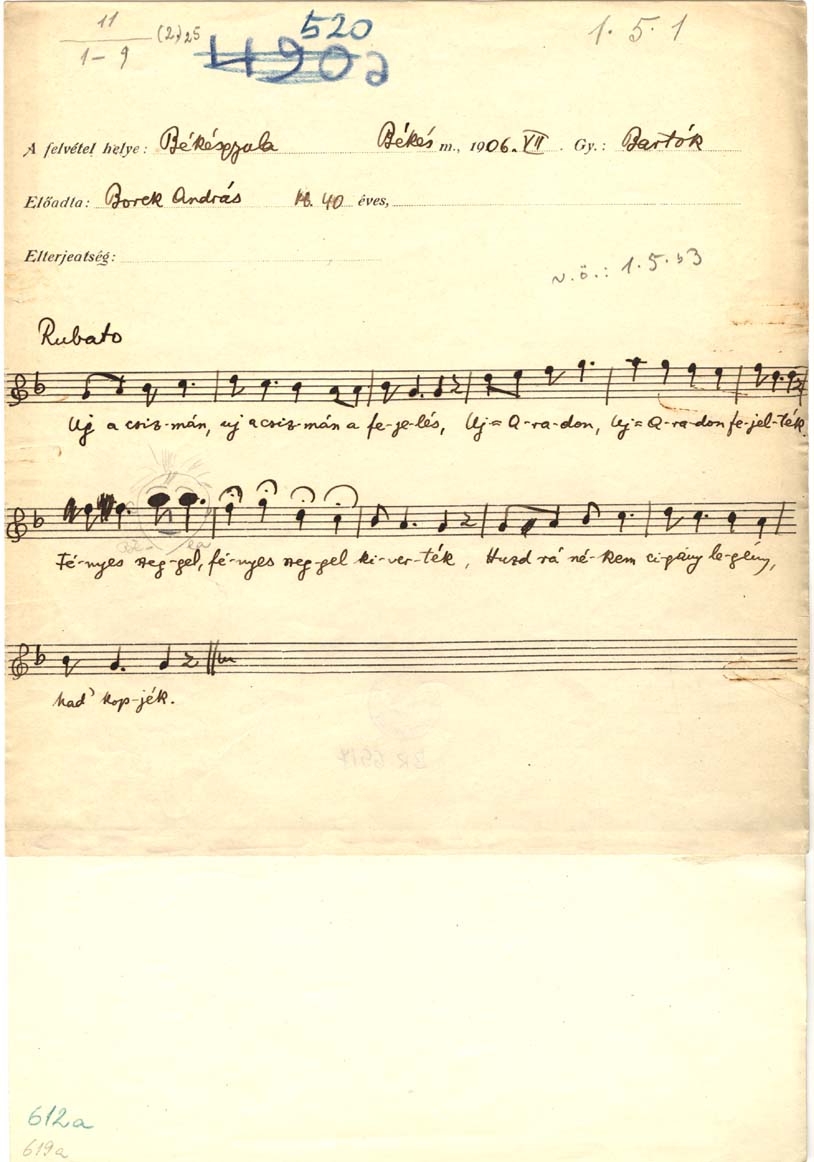 11 (2.) 25 520 1. 5. 1
1-9 4902
A felvétel helye: Békésgyula Békés m., 1906. VII. Gy.: Bartók
Előadta: Borek András 40 éves,
Elterjeatség:
v.ö.: 1. 5. 3
Rubato
Uj a csiz-mán, uj a csiz-mán a fe-je-lés, Uj=A-ra-don, Uj=A-ra-don fe-jel-ték.
Fé-nyes szeg-gel, fé-nyes szeg-gel ki-ver-ték, Huzd rá né-kem ci-gány le-gény,
had' kop-ják.
BR 6517
612a
619a